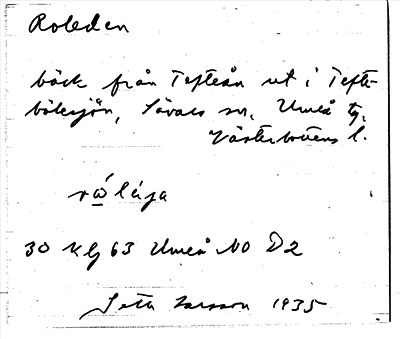 Roleden
bäck från Tefteån ut i Tefte-
böleskjön, Sävars sn, Umeå tg.
Västerbottens l.
30 Kg 63 Umeå NO D2
Seth Larsson 1935